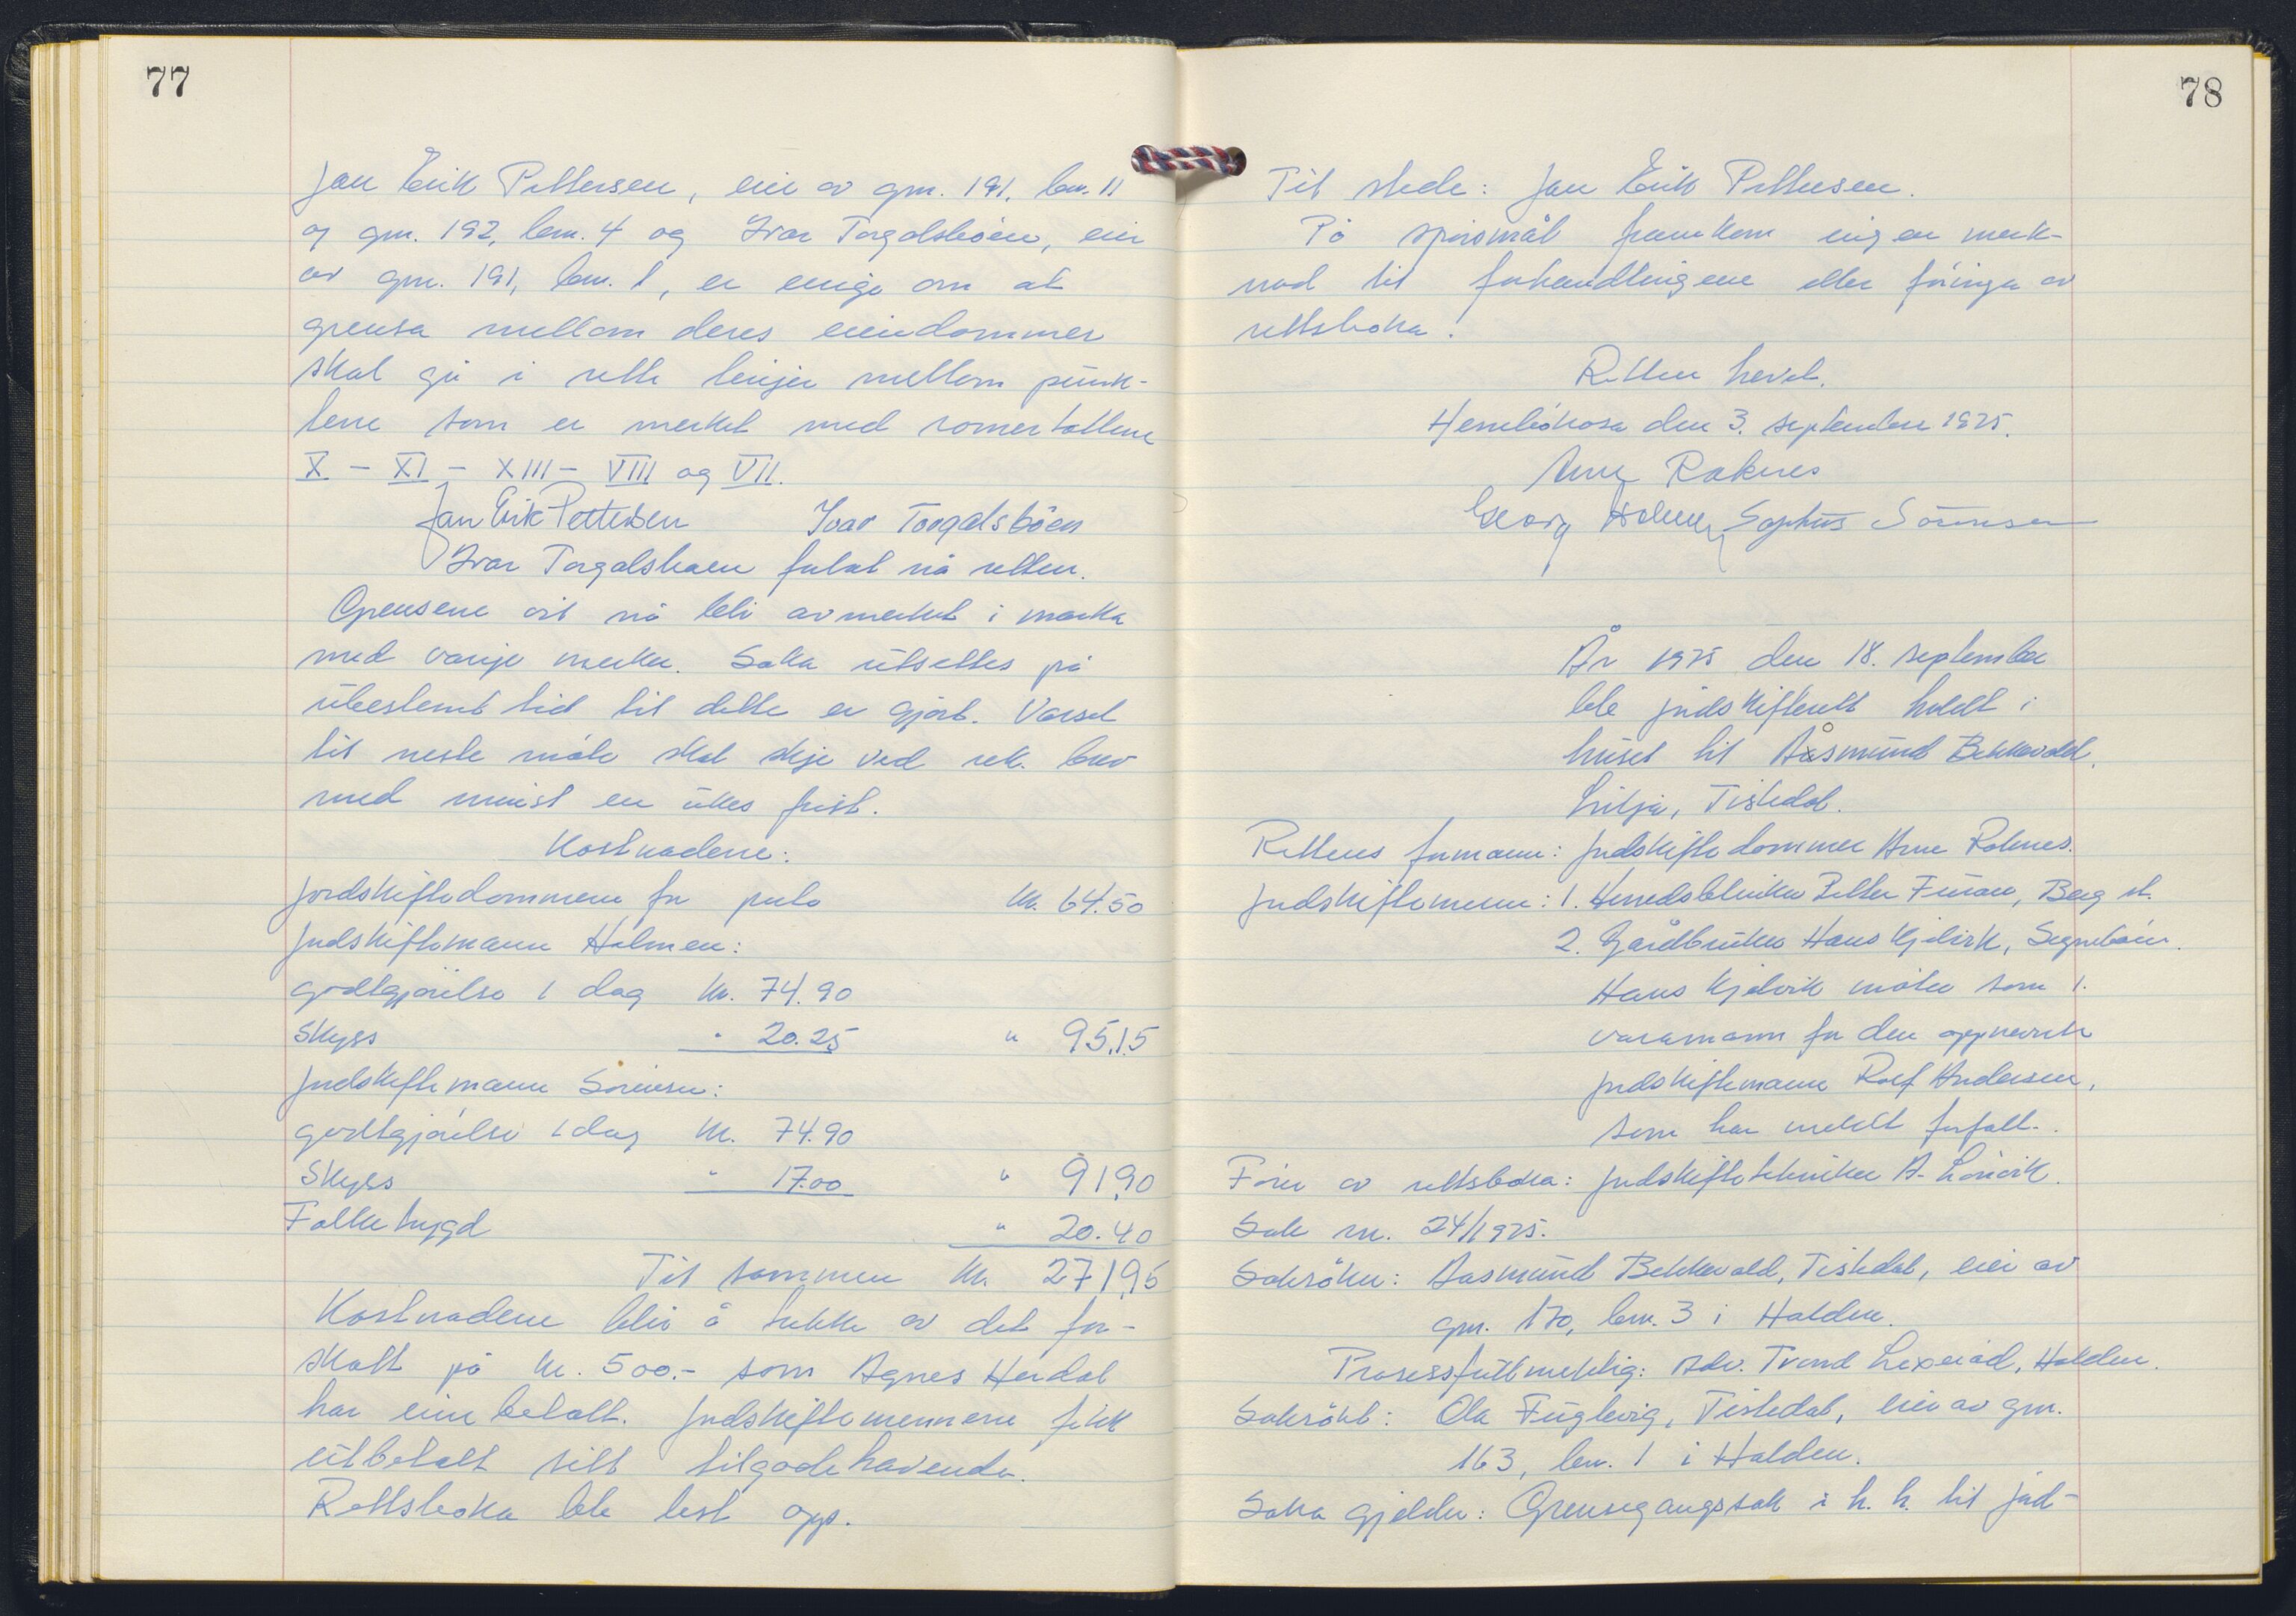 77
Jan Erik Pettersen, eier av gnr. 191, bnr. 11
og gnr. 192, bnr. 4 og Ivar Torgalsbøen, eier
av gnr. 191, bnr. 1, er enige om at
grensa mellom deres eiendommer
skal gå i rette linjer mellom punk-
tene som er merket med romertallene
X - XI - XIII - VIII og VII.
Jan Erik Pettersen Ivar Torgalsböen
Ivar Torgalsbøen forlot nå retten.
Grensene vil nå bli avmerket i marka
med varige merker. Saka utsettes på
ubestemt tid til dette er gjort. Varsel
til neste møte skal skje ved rek. brev
med minst en ukes frist.
Kostnadene:
Jordskiftedommeren for porto kr. 64.50
Jordskiftemann Holmen:
godtgjørelse 1 dag kr. 74.90
Skyss " 20.25 " 95.15
Jordskiftemann Sørensen:
godtgjørelse 1 dag kr. 74.90
Skyss " 17.00 " 91.90
Folketrygd " 20.40
Til sammen kr. 271.95
Kostnadene blir å trekke av det for-
skott på kr. 500.- som Agnes Herdal
har innbetalt. Jordskiftemennene fikk
utbetalt sitt tilgodehavende.
Rettsboka ble lest opp.
78
Til stede: Jan Erik Pettersen.
På spørsmål framkom ingen merk-
nad til forhandlingene eller føringa av
rettsboka.
Retten hevet.
den 3. september 1975.
Arne Raknes
Georg Holmen Sophus Sørensen
År 1975 den 18. september
ble jordskifterett holdt i
huset til Åsmund Bekkevold,
Tistedal.
Rettens formann: Jordskiftedommer Arne Raknes.
Jordskiftemenn: 1. Petter Furau, Berg st.
2. Gårdbruker Hans Kjelvik,
Hans Kjelvik møter som 1.
varamann for den oppnevnte
jordskiftemann Rolf Andersen,
som har meldt forfall.
Fører av rettsboka: Jordskiftetekniker A. Lönvik.
Sak nr. 24/1975.
Saksøker: Aasmund Bekkevold, Tistedal, eier av
gnr. 170, bnr. 3 i Halden.
Prosessfullmektig: Adv. Trond Lexerød, Halden.
Saksøkt: Ola Fuglevig, Tistedal, eier av gnr.
163, bnr. 1 i Halden.
Saka gjelder: Grensegangssak i h. h. til jord-